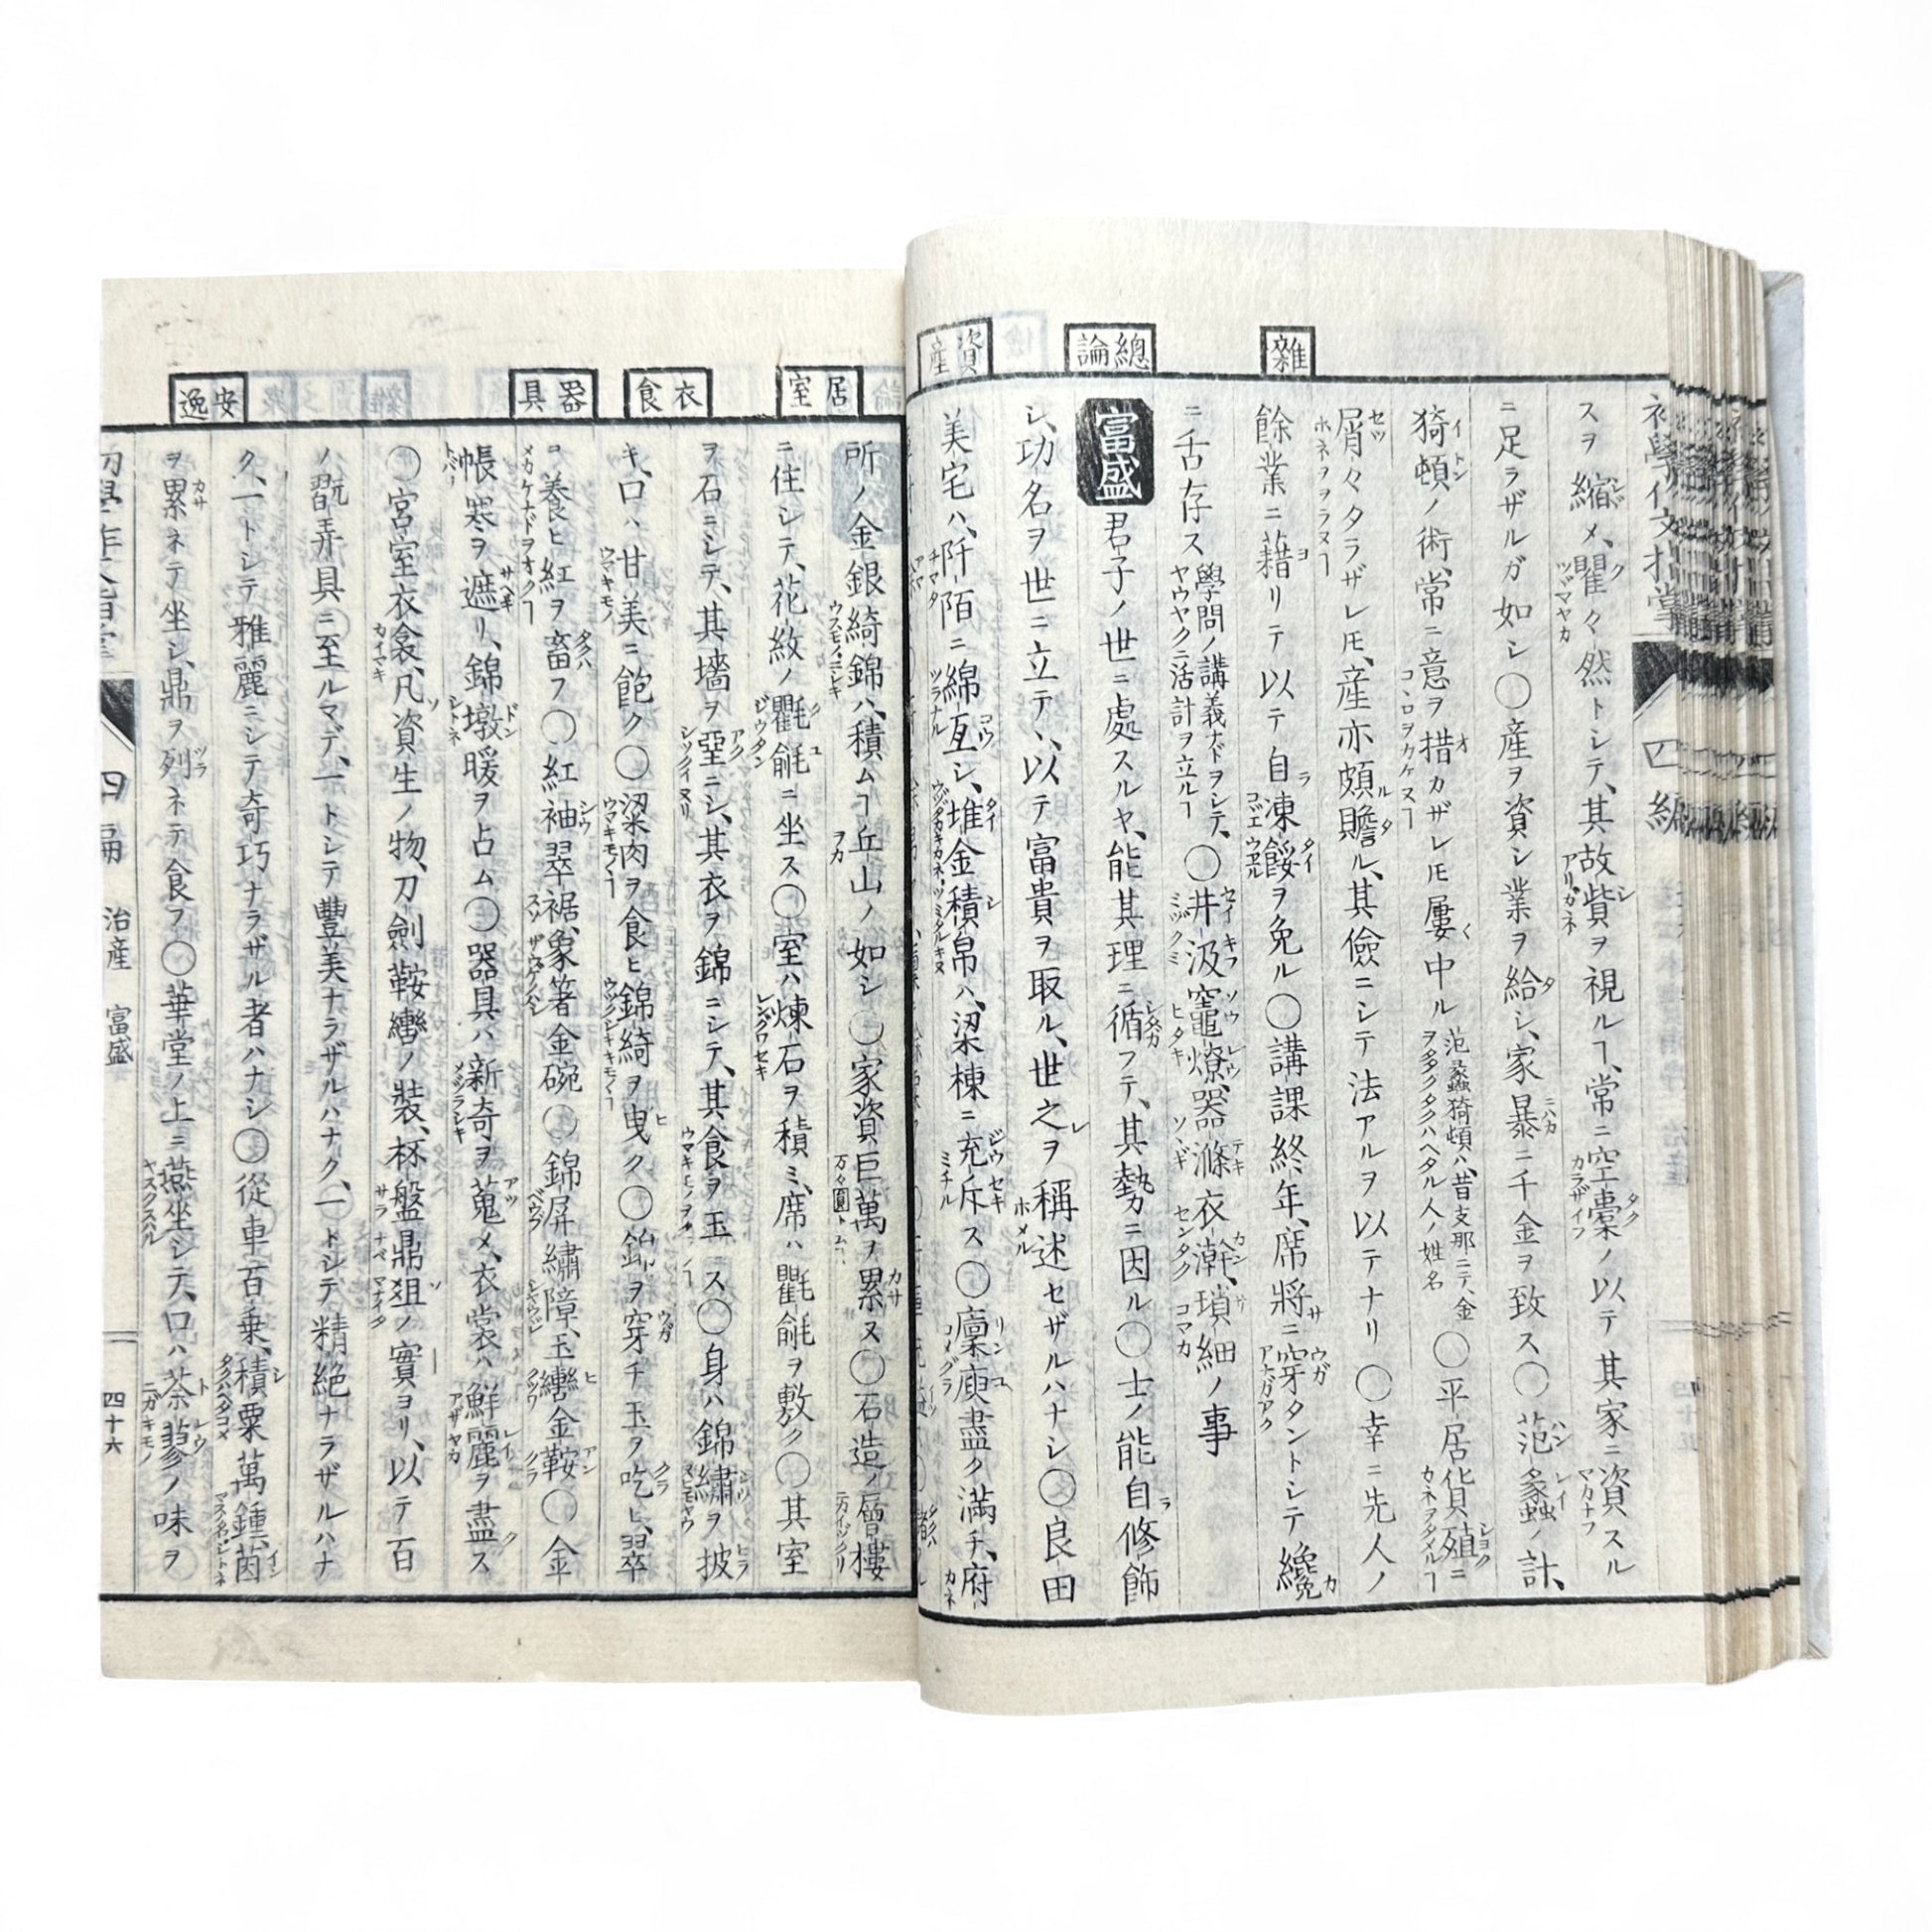 雜
總論
資產
スヲ縮メ、瞿々然トシテ、其故貲ヲ視ルヿ、常ニ空槖ノ以テ其家ニ資スル
ニ足ラザルガ如シ〇產ヲ資シ業ヲ給シ、家暴ニ千金ヲ致ス〇范蠡ノ計、
猗頓ノ術、常ニ意ヲ措カザレ𪜈屢中ル范蠡猗頓ハ、昔支那ニテ、金ヲ多クタクハヘタル人ノ姓名〇平居貨殖ニ
屑々タラザレ𪜈、產亦頗贍ル、其儉ニシテ法アルヲ以テナリ〇幸ニ先人ノ
餘業ニ藉リテ以テ自凍餒ヲ免ル〇講課終年、席將ニ穿タントシテ纔カ
ニ舌存ス學問ノ講義ナドヲシテ、ヤウヤクニ活計ヲ立ルヿ〇井汲竈燎、器滌衣澣、瑣細ノ事
富盛 君子ノ世ニ處スルヤ、能其理ニ循フテ、其勢ニ因ル〇士ノ能自修飾
シ、功名ヲ世ニ立テ、以テ富貴ヲ取ル、世之ヲ稱述セザルハナシ〇良田
美宅ハ、阡陌ニ綿亙シ、堆金積帛ハ、梁棟ニ充斥ス〇廩庾盡ク滿チ、府
居室
衣食
器具
安逸
所ノ金銀綺錦ハ、積ムヿ丘山ノ如シ〇家資巨萬ヲ累ヌ〇石造ノ層樓
ニ住シテ、花紋ノ氍毹ニ坐ス〇室ハ煉石ヲ積ミ、席ハ氍毹ヲ敷ク〇其室
ヲ石ニシテ、其墻ヲ堊ニシ、其衣ヲ錦ニシテ、其食ヲ玉ニス〇身ハ錦繡ヲ披
キ、口ハ甘美ニ飽ク〇粱肉ヲ食ヒ錦綺ヲ曳ク〇鉛ヲ穿チ玉ヲ吃ヒ、翠
ヲ養ヒ紅ヲ畜フ〇紅袖翠裾、象箸金碗〇錦屏繡障、玉轡金鞍〇金
帳寒ヲ遮リ、錦墩暖ヲ占ム〇器具ハ新奇ヲ蒐メ、衣裳ハ鮮麗ヲ盡ス
〇宮室衣衾、凡資生ノ物、刀劍鞍轡ノ裝、杯盤鼎俎ノ實ヨリ、以テ百
ノ翫弄具ニ至ルマデ、一トシテ豐美ナラザルハナク、一トシテ精絕ナラザルハナ
ク、一トシテ雅麗ニシテ奇巧ナラザル者ハナシ〇從車百乗、積粟萬鍾、茵
ヲ累ネテ坐シ、鼎ヲ列ネテ食フ〇華堂ノ上ニ燕坐シテ、口ハ荼蓼ノ味ヲ
四編 治產 富盛 四十六